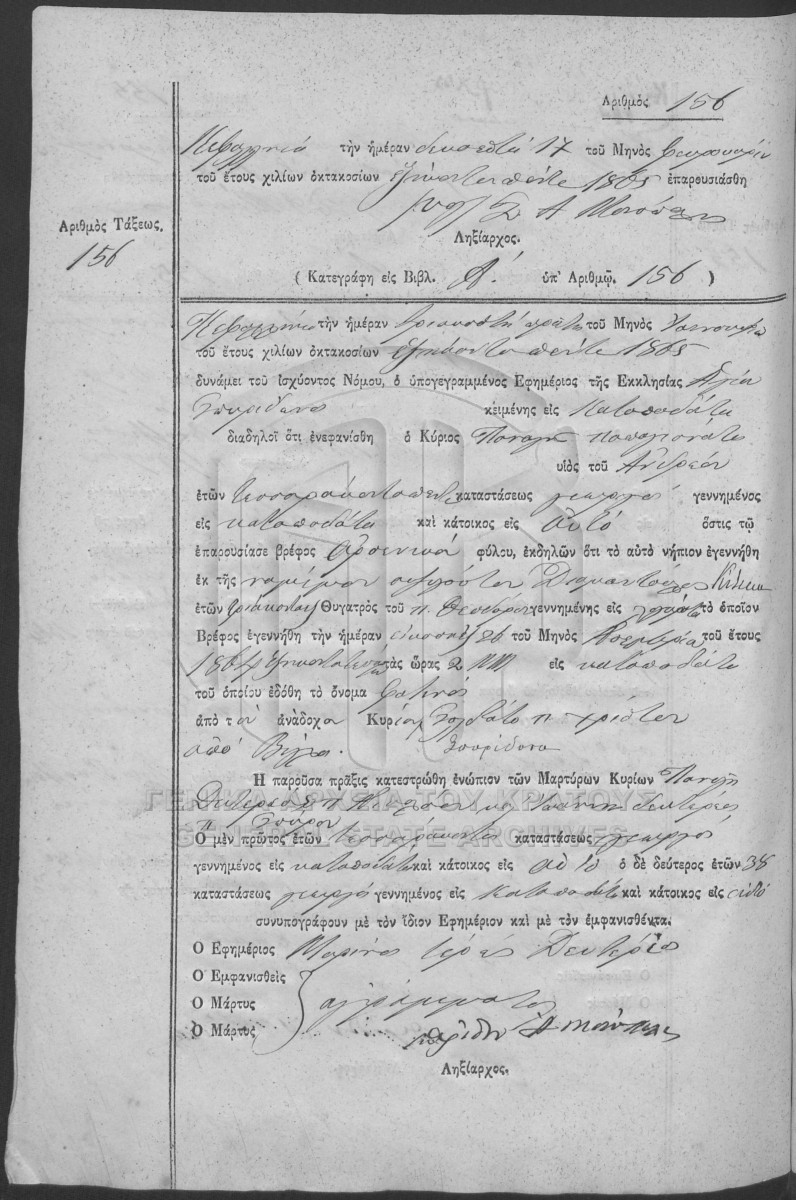 Αριθμὸς 156
Κεφαλληνία τὴν ἡμέραν δεκαεπτά 17 τοῦ Μηνὸς Φεβρουαρίου
τοῦ ἔτους χιλίων ὀκτακοσίων ἑξήκοντα πέντε 1865 ἐπαρουσιάσθη
Ληξίαρχος.
Αριθμὸς Τάξεως.
156
( Κατεγράφη εἰς Βιβλ. Α'. ὑπ' Αριθμῷ. 156 )
Κεφαλληνία τὴν ἡμέραν τριακοστή πρώτη τοῦ Μηνὸς Ἰαννουαρίου
τοῦ ἔτους χιλίων ὀκτακοσίων ἑξήκοντα πέντε 1865
δυνάμει τοῦ ἰσχύοντος Νόμου, ὁ ὑπογεγραμμένος Εφημέριος τῆς Εκκλησίας Αγίου
Σπυρίδωνος κειμένης εἰς Καταποδάτα
διαδηλοῖ ὅτι ἐνεφανίσθη ὁ Κύριος Παναγῆ
υἱὸς τοῦ Ανδρέου
ἐτῶν τεσσαράκοντα πέντε καταστάσεως γεωργός γεννημένος
εἰς καταποδάτα καὶ κάτοικος εἰς αὐτό ὅστις τῷ
ἐπαρουσίασε βρέφος αρσενικό φύλου, ἐκδηλῶν ὅτι τὸ αὐτὸ νήπιον ἐγεννήθη
ἐκ τῆς νομίμου συζύγου του Διαμαντούλας
ἐτῶν Θυγατρὸς τοῦ π. Θεοδώρου γεννημένης εἰς τὸ ὁποῖον
Βρέφος ἐγεννήθη τὴν ἡμέραν εἰκοσιέξ 26 τοῦ Μηνὸς τοῦ ἔτους
1864 τὰς ὥρας 2 ΠΜ εἰς καταποδάτα
τοῦ ὁποίου ἐδόθη τὸ ὄνομα Φωτεινός
ἀπὸ τον ἀνάδοχον Κυρίον π. χρίστου
ἀπό Βίγλα. Σπυρίδωνα
Η παροῦσα πρᾶξις κατεστρώθη ἐνώπιον τῶν Μαρτύρων Κυρίων Παναγῆ
Δευτερέος π. καὶ Ιωάννη Δευτερέος
π. Σπύρου
Ο μὲν πρῶτος ἐτῶν τεσσαράκοντα καταστάσεως γεωργός
γεννημένος εἰς καταποδάτα καὶ κάτοικος εἰς αὐτό ὁ δὲ δεύτερος ἐτῶν 38
καταστάσεως γεωργό γεννημένος εἰς Καταποδάτα καὶ κάτοικος εἰς αὐτό
συνυπογράφουν μὲ τὸν ἴδιον Εφημέριον καὶ μὲ τὸν ἐμφανισθέντα.
Ο Εφημέριος Μαρίνος ἱερεύς Δευτερέος
Ο Εμφανισθεὶς
Ο Μάρτυς αγράμματοι
Ο Μάρτυς
Ληξίαρχος.
ΓΕΝΙΚΑ ΑΡΧΕΙΑ ΤΟΥ ΚΡΑΤΟΥΣ
GENERAL STATE ARCHIVES